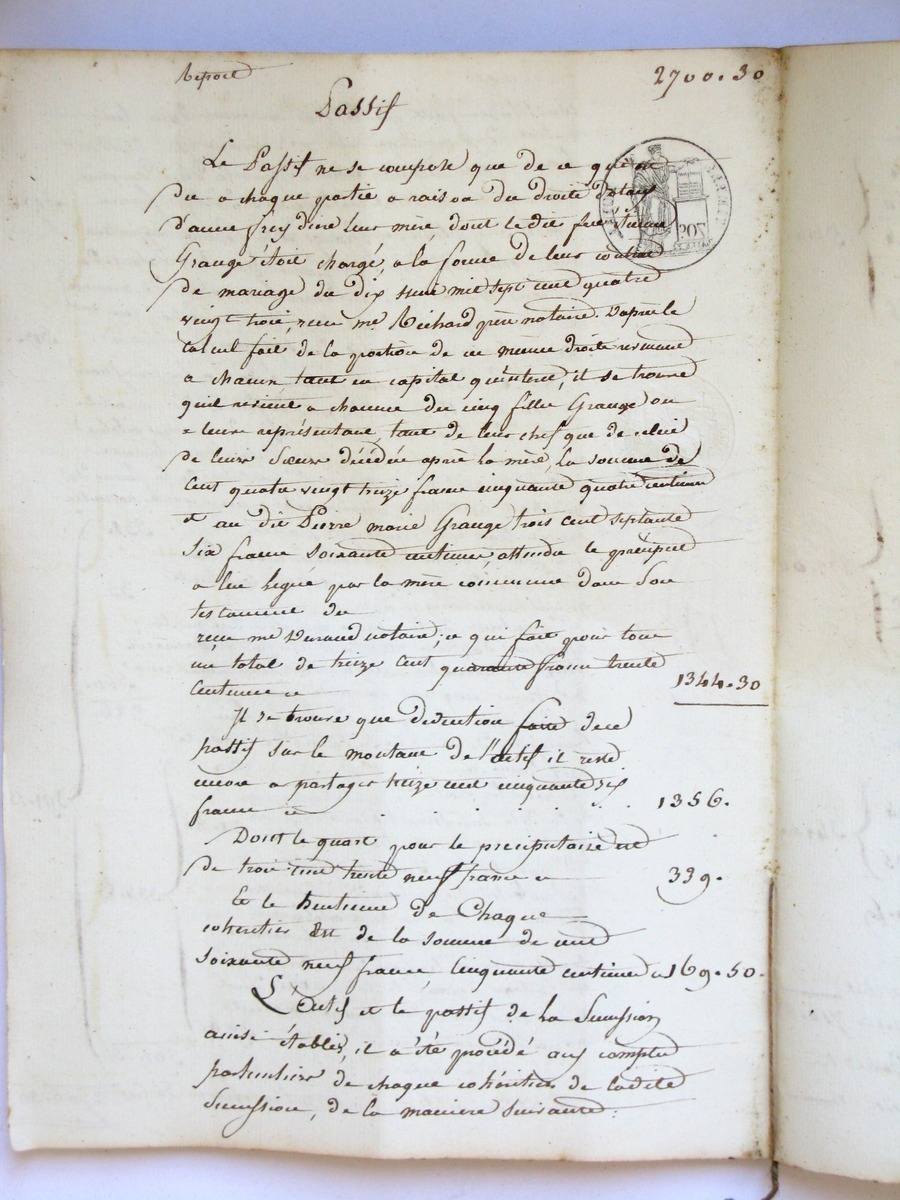 Report 2700.30
Passif
Le Passif ne se compose que de ce qui est
du a chaque partie a raison du droits dotaux
d'anne frey diere leur mère, dont le dit feu
Grange étoit chargé, a la forme de leur contrat
de mariage du dix mil sept cent quatre
vingt trois, recu me Richard père notaire. D'après le
calcul fait de la portion de ce même droits revenant
a chacun tant en capital qu'interet, il se trouve
qu'il revient a chacune des cinq filles Grange ou
= leurs représentant, tant de leur chef que de celui
de leur Sœur décédée après la mère, la somme de
Cent quatre vingt treize francs cinquante quatre centimes
et au dit Pierre marie Grange trois cent septante
six francs soixante centimes, attendu le préciput
a lui legué par la mère commune dans Son
testament du
recu me Durand notaire; ce qui fait pour tous
un total de treize cent quarante francs trente
centimes ci 1344.30
Il se trouve que deduction faite de ce
passif sur le montant de l'actif il reste
encore a partager treize cent cinquante six
francs ci . . . . . 1356.
Dont le quart pour le preciputaire est
de trois cent trente neuf francs ci 339.
Et le huitieme de Chaque
cohéritier Est de la somme de cent
soixante neuf francs, cinquante centimes ci 169.50.
L'actif et le passif de la Succession
ainsi établis, il a été procédé aux comptes
particuliers de chaque cohéritier de ladite
Succession, de la manière suivante: